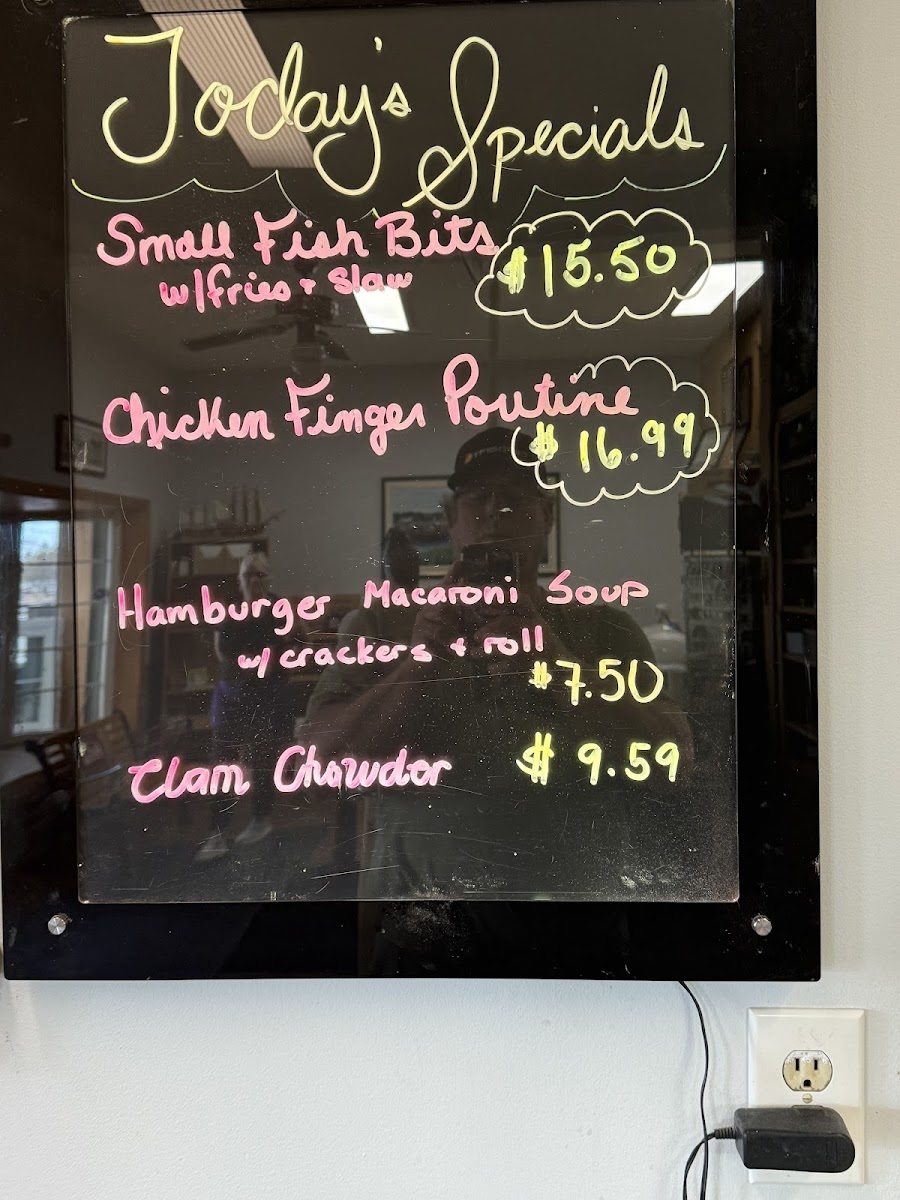 Today's Specials
Small Fish Bits
w/fries + Slaw
$15.50
Chicken Finger Poutine
$16.99
Hamburger Macaroni Soup
w/ crackers + roll
$7.50
Clam Chowder $9.59